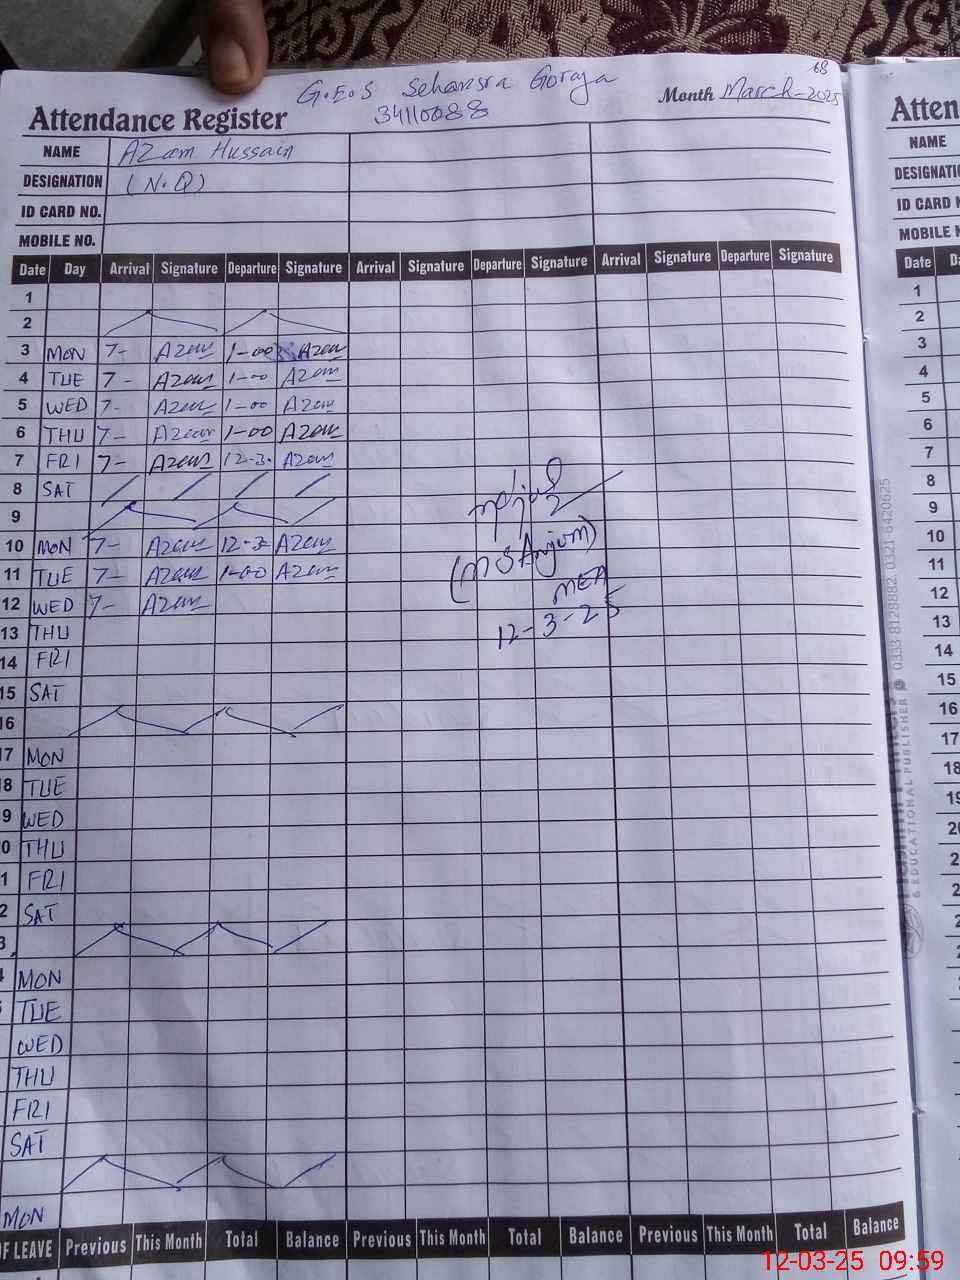 68
G.E.S Sehansra Goraya
Attendance Register 34110088 Month March-2025
NAME Azam Hussain
DESIGNATION (N.Q)
ID CARD NO.
MOBILE NO.
Date Day Arrival Signature Departure Signature Arrival Signature Departure Signature Arrival Signature Departure Signature
1
2
3 MON 7- Azam 1-00 Azam
4 TUE 7- Azam 1-00 Azam
5 WED 7- Azam 1-00 Azam
6 THU 7- Azam 1-00 Azam
7 FRI 7- Azam 12-3. Azam
8 SAT
9
10 MON 7- Azam 12-3 Azam
11 TUE 7- Azam 1-00 Azam
12 WED 7- Azam
13 THU
14 FRI
15 SAT
16
17 MON
8 TUE
9 WED
0 THU
1 FRI
2 SAT
3
MON
TUE
WED
THU
FRI
SAT
MON
(M S Anjum)
MEA
12-3-25
F LEAVE Previous This Month Total Balance Previous This Month Total Balance Previous This Month Total Balance
Atten
NAME
DESIGNATI
ID CARD N
MOBILE N
Date Da
1
2
3
4
5
6
7
8
9
10
11
12
13
14
15
16
17
18
19
20
& EDUCATIONAL PUBLISHER 0333-8128882, 0321-6420625
12-03-25 09:59